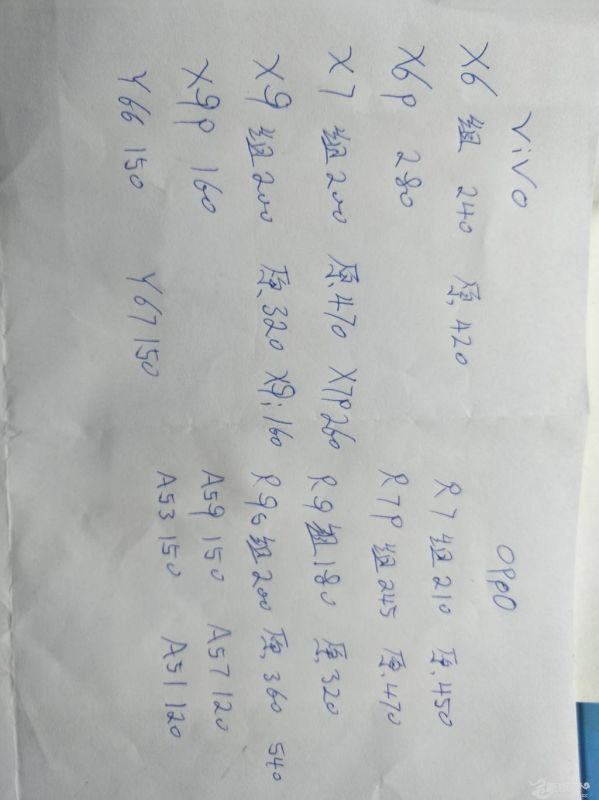 ViVo
X6 组 240 原.420
X6P 280
X7 组200 原.470 X7P260
X9 组200 原.320 X9i160
X9P 160
Y66 150 Y67 150
OPPO
R7 组210 原.450
R7P 组245 原.470
R9组180 原.320
R9s组200 原.360 540
A59 150 A57 120
A53 150 A51 120